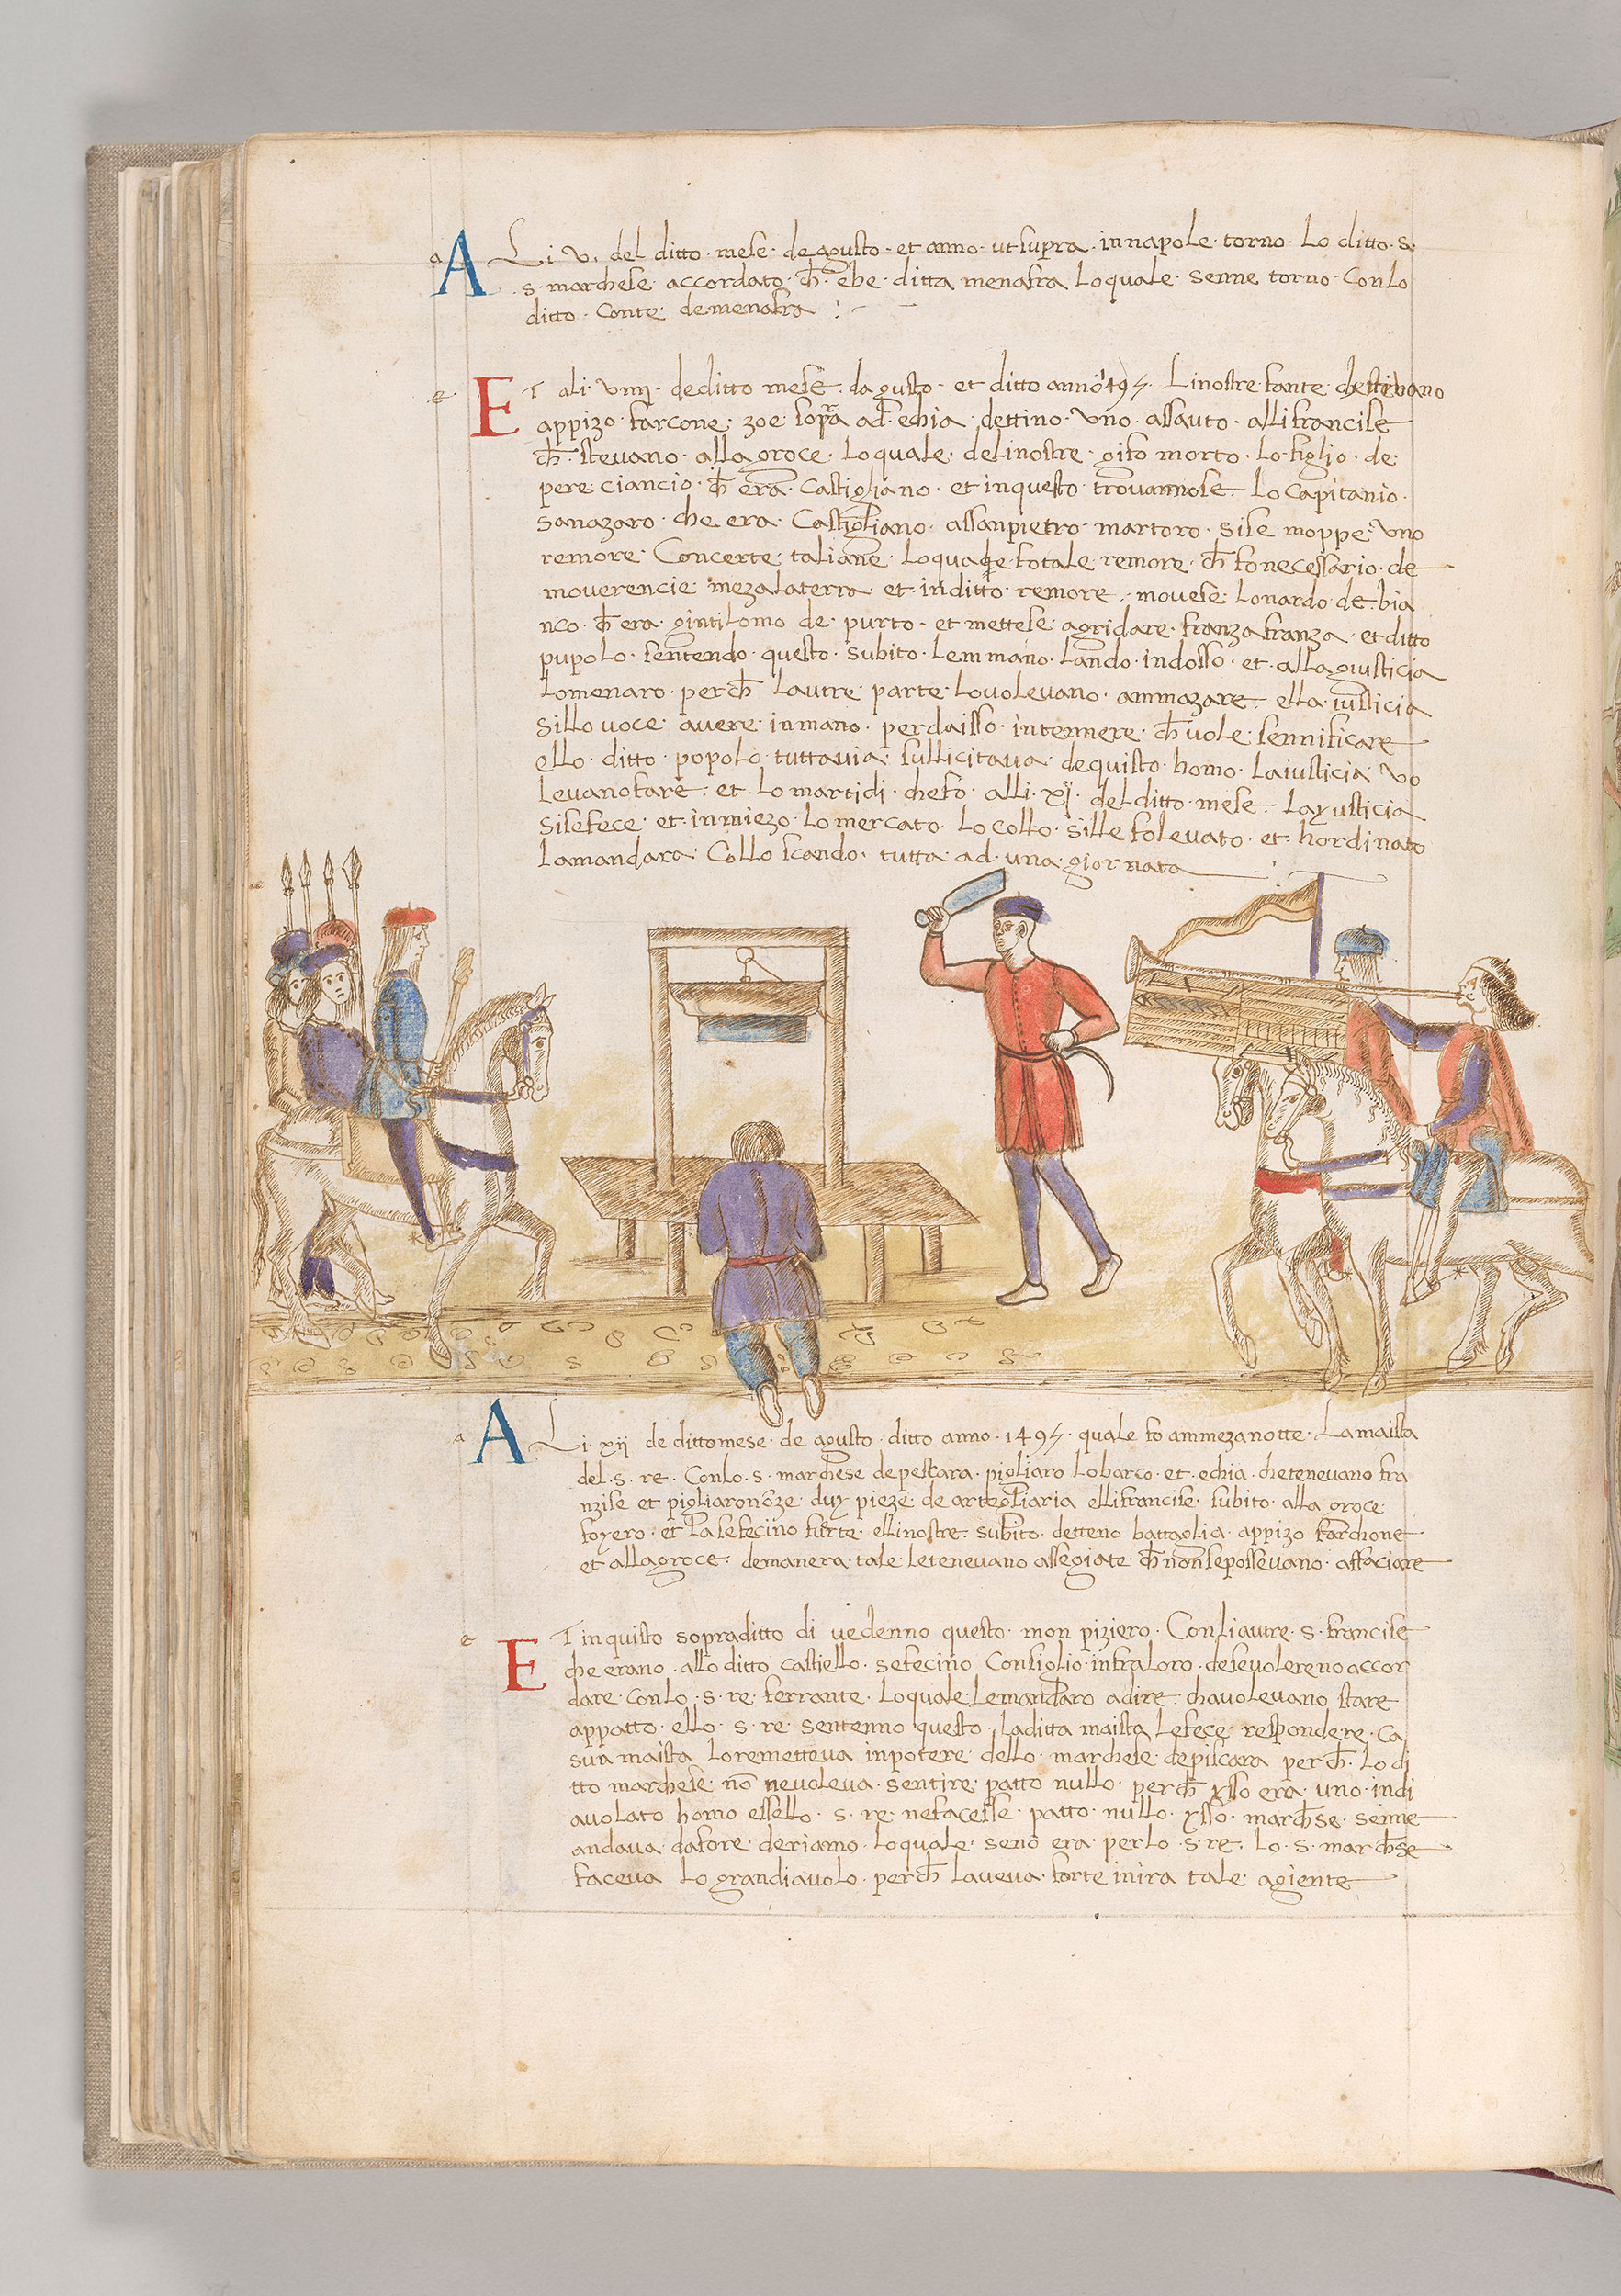 a
A Li v. del ditto · mese · de agusto · et anno · ut supra · in napole · torno · Lo ditto · s·
· s · marchese · accordato · ch̄ · ebe · ditta menafra Loquale · senne torno · Con Lo
ditto · Conte · demenafra
e
ET ali · viiij · de ditto mese · dagusto · et ditto anno 1495 · Li nostre fante che stevano
appizo · farcone · zoe sopra ad echia · dettino · uno · assauto · alli francise
ch̄ · stevano · alla groce · Loquale · de li nostre · gifo morto · Lo figlio · de
pere ciancio · ch̄ era · Castigliano · et inquesto · trovannose · Lo Capitanio ·
Sanazaro · che era · Castigliano · assanpietro · martoro · sise moppe · uno
remore · Concerte · taliane · Loquale fo tale · remore · ch̄ fo necessario · de
moverencie meza Laterra · et inditto · remore · movese · Lonardo de · bia
nco · ch̄ era · gintilomo de · purto · et mettese · agridare · franza franza · et ditto
pupolo · sentendo · questo · subito · Lemmano · Lando · indosso · et · alla giusticia
Lomenaro · perch̄ Lautre · parte · Lo volevano · ammazare · ella iusticia
sillo voce · avere · inmano · perdaisso · intennere · ch̄ vole · sennificare
ello · ditto · popolo · tuttavia · sullicitava · dequisto · homo · La iusticia vo
levano fare · et · Lo martidi · che fo · alli · xij · del ditto · mese · La yusticia
si se fece · et · inmiezo · Lo mercato · Lo collo · sille folevato · et · hordinato
Lamandara · Collo scando · tutta · ad · una · giornata
a
A Li xij de ditto mese · de agusto · ditto anno · 1495 · quale fo ammezanotte · La maista
del · s · re · Con Lo · s · marchese depescara · pigliaro Lo barco · et · echia · che tenevano fra
nzise et pigliaronoze duy pieze de artegliaria elli francise · subito · alla groce
foyero · et La se feciino forte · elli nostre · subito · detteno battaglia · appizo farchone
et alla groce · demanera · tale Le tenevano assegiate · ch̄ non se possevano · affaciare
e
ET in quisto sopraditto di vedenno questo · mon piziero · Con li autre · s · francise
che erano · allo ditto castiello · se fecino Consiglio · infra Loro · de se volereno accor
dare · con Lo · s · re · ferrante · Loquale Le mandaro a dire · cha volevano stare
appatto · ello · s · re · sentenno questo · La ditta maista Le fece · respondere · ca
sua maista Lo remetteva inpotere · dello · marchese · depiscara perch̄ · Lo di
tto marchese · nō nevoleva · sentire · patto nullo · perch̄ ysso era · uno · indi
avolato homo essello · s · re · nefacesse · patto · nullo · ysso · march̄se · senne
andava · dafore · deriamo · Loquale · seno era perlo · s · re · Lo · s · march̄se
faceva Lo grandiavolo · perch̄ Laveva · forte in ira tale · agiente